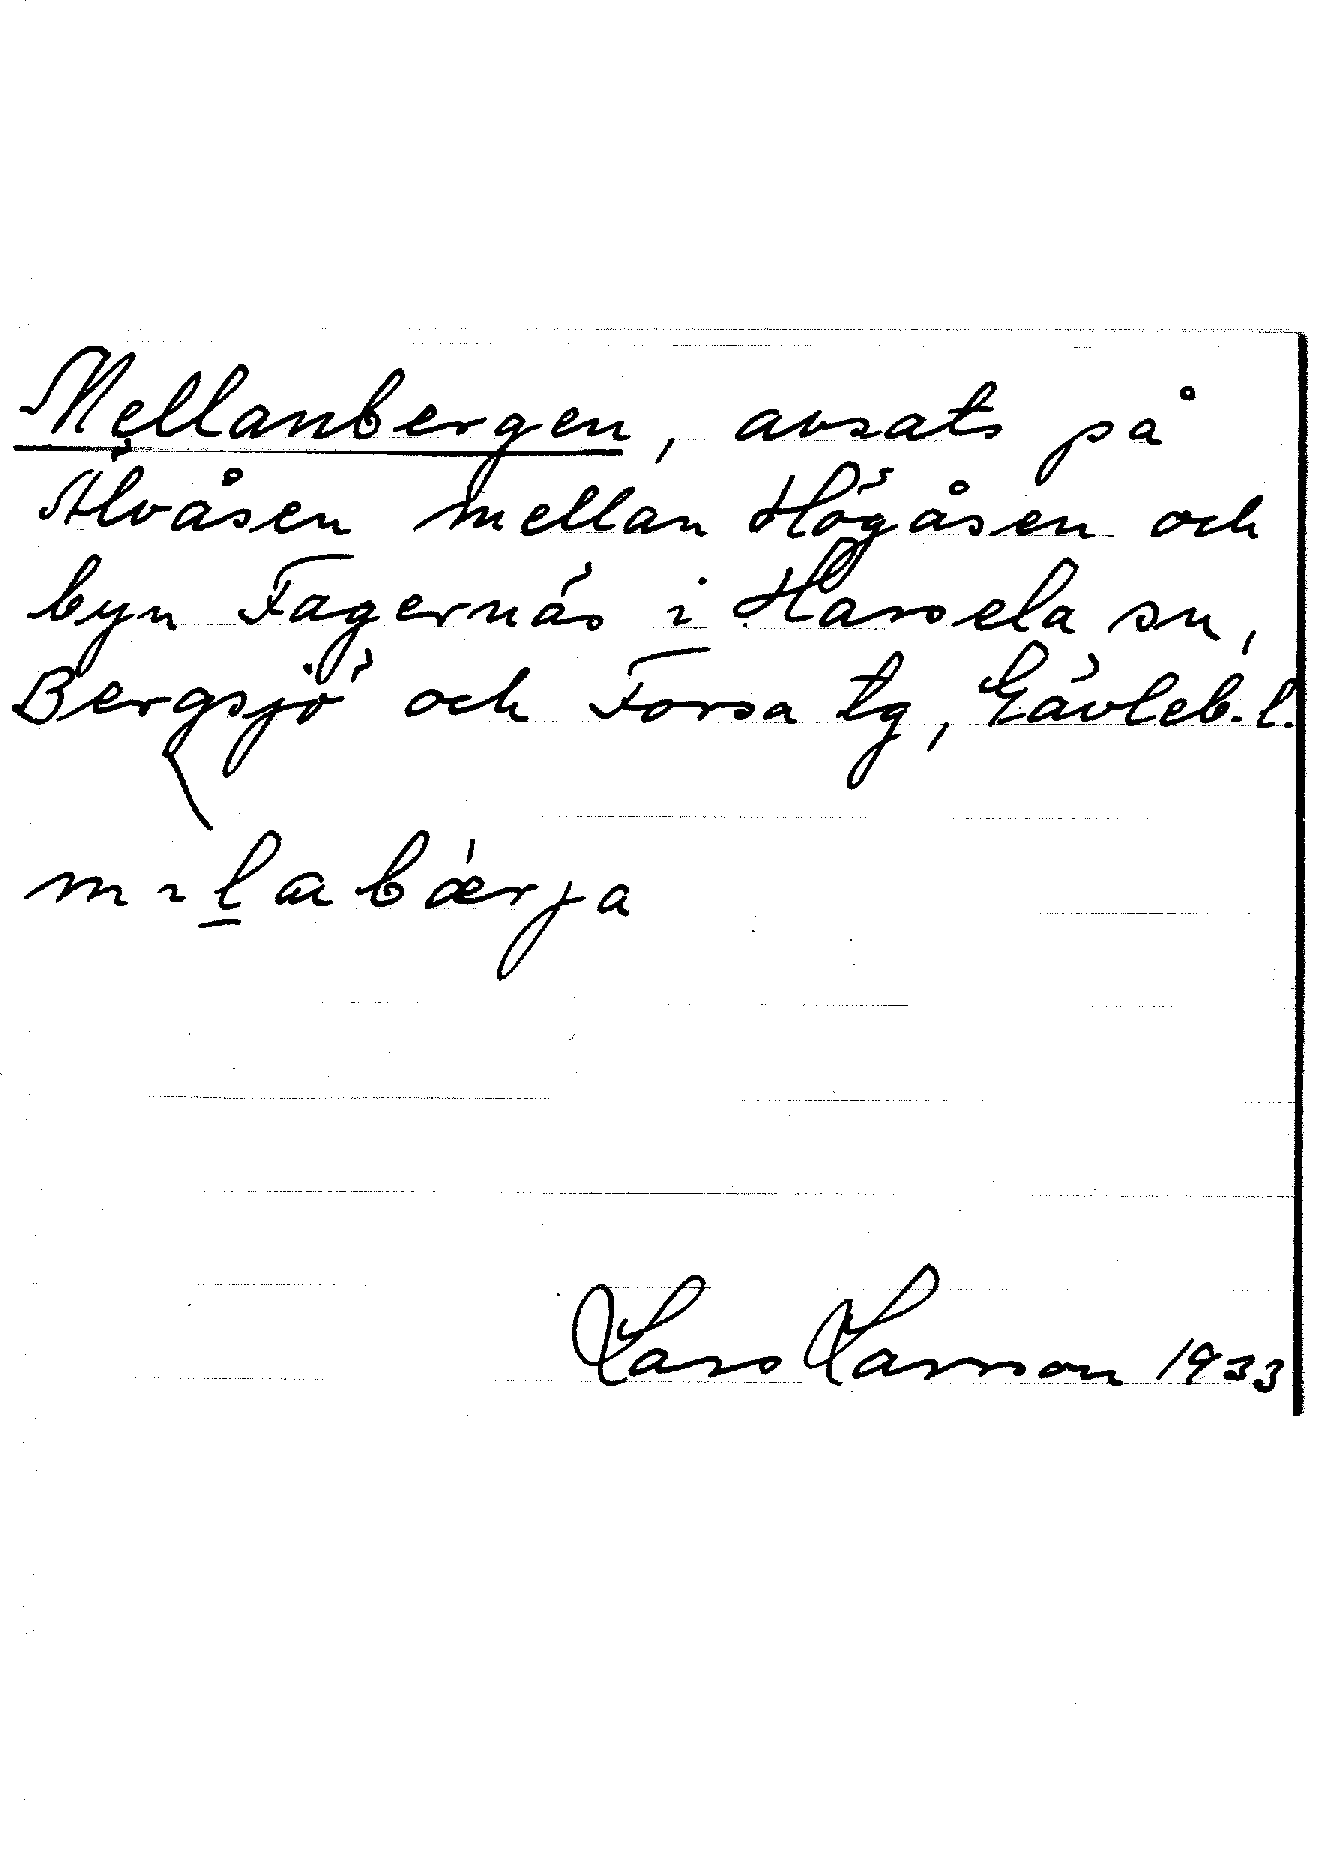 Mellanbergen, avsats på
Älvåsen mellan Högåsen och
byn Fagernäs i Hassela sn,
Bergsjö och Forsa tg, Gävleb. l.
mılabærja
Lars Larsson 1933